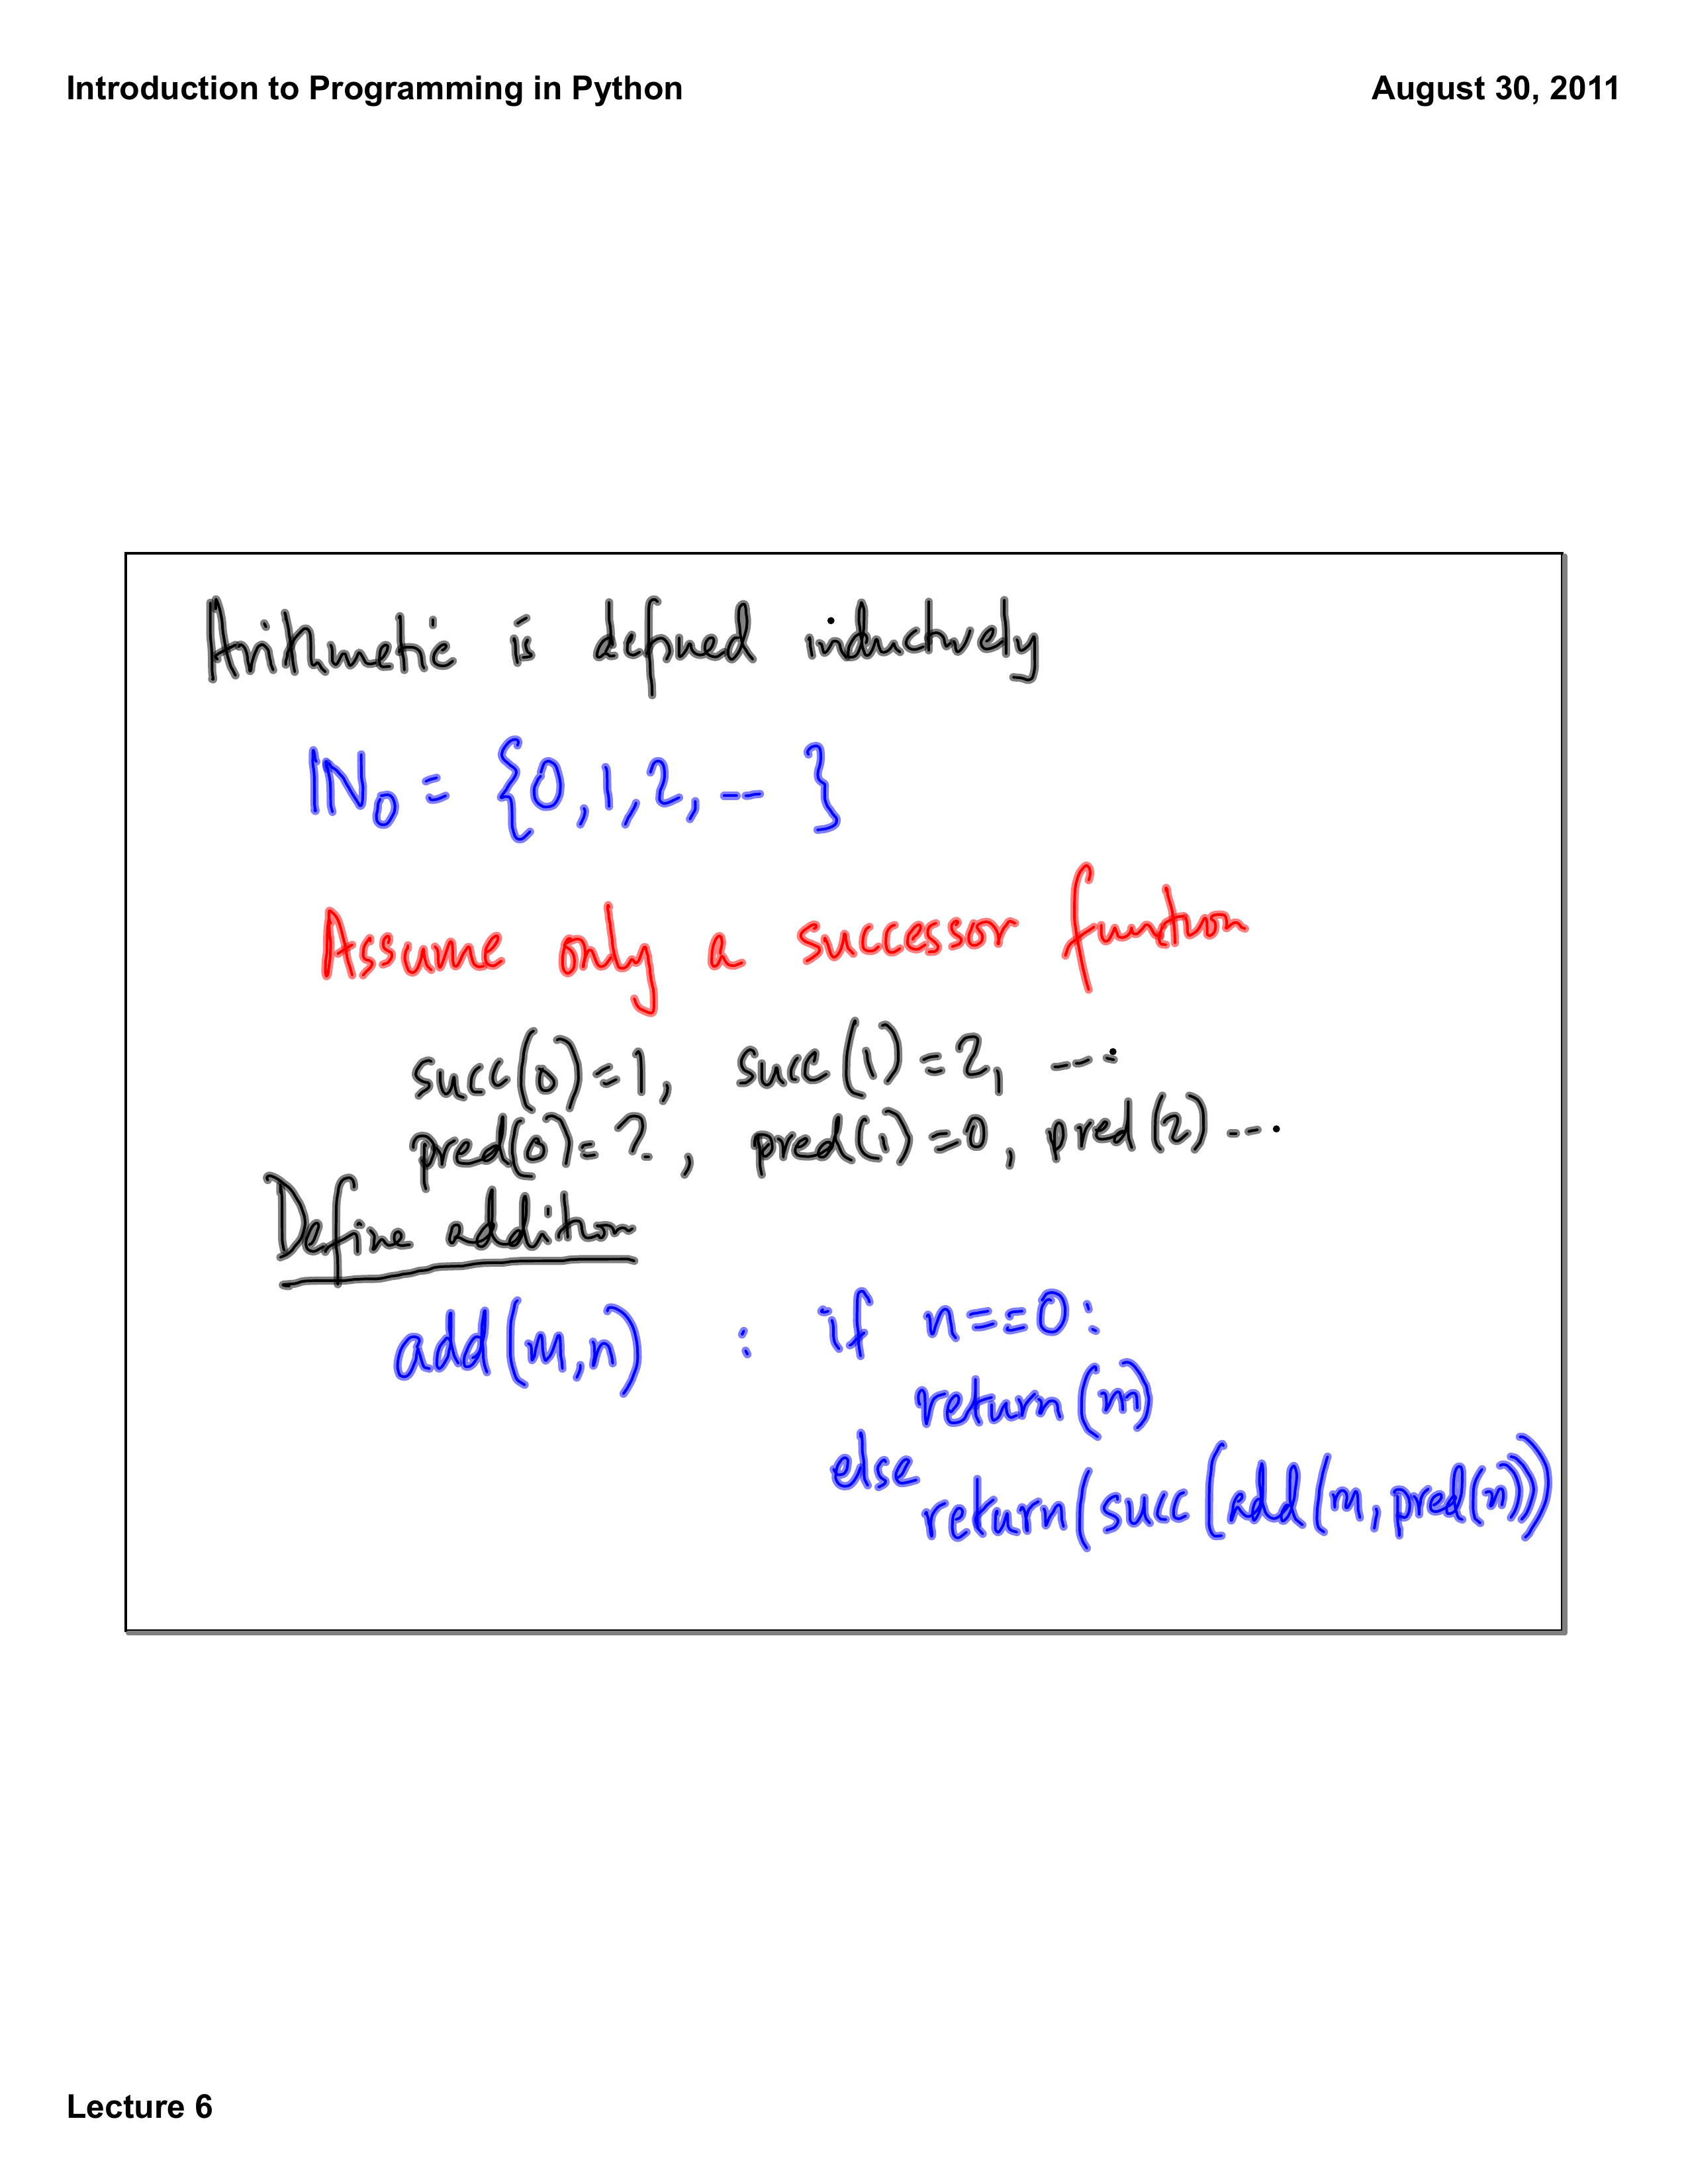 Introduction to Programming in Python August 30, 2011
Arithmetic is defined inductively
ℕ₀ = {0,1,2, --- }
Assume only a successor function
succ(0)=1, succ(1)=2, ----
pred(0)=?, pred(1)=0, pred(2) ---
Define addition
add(m,n) : if n==0:
return(m)
else
return(succ(add(m,pred(n)))
Lecture 6